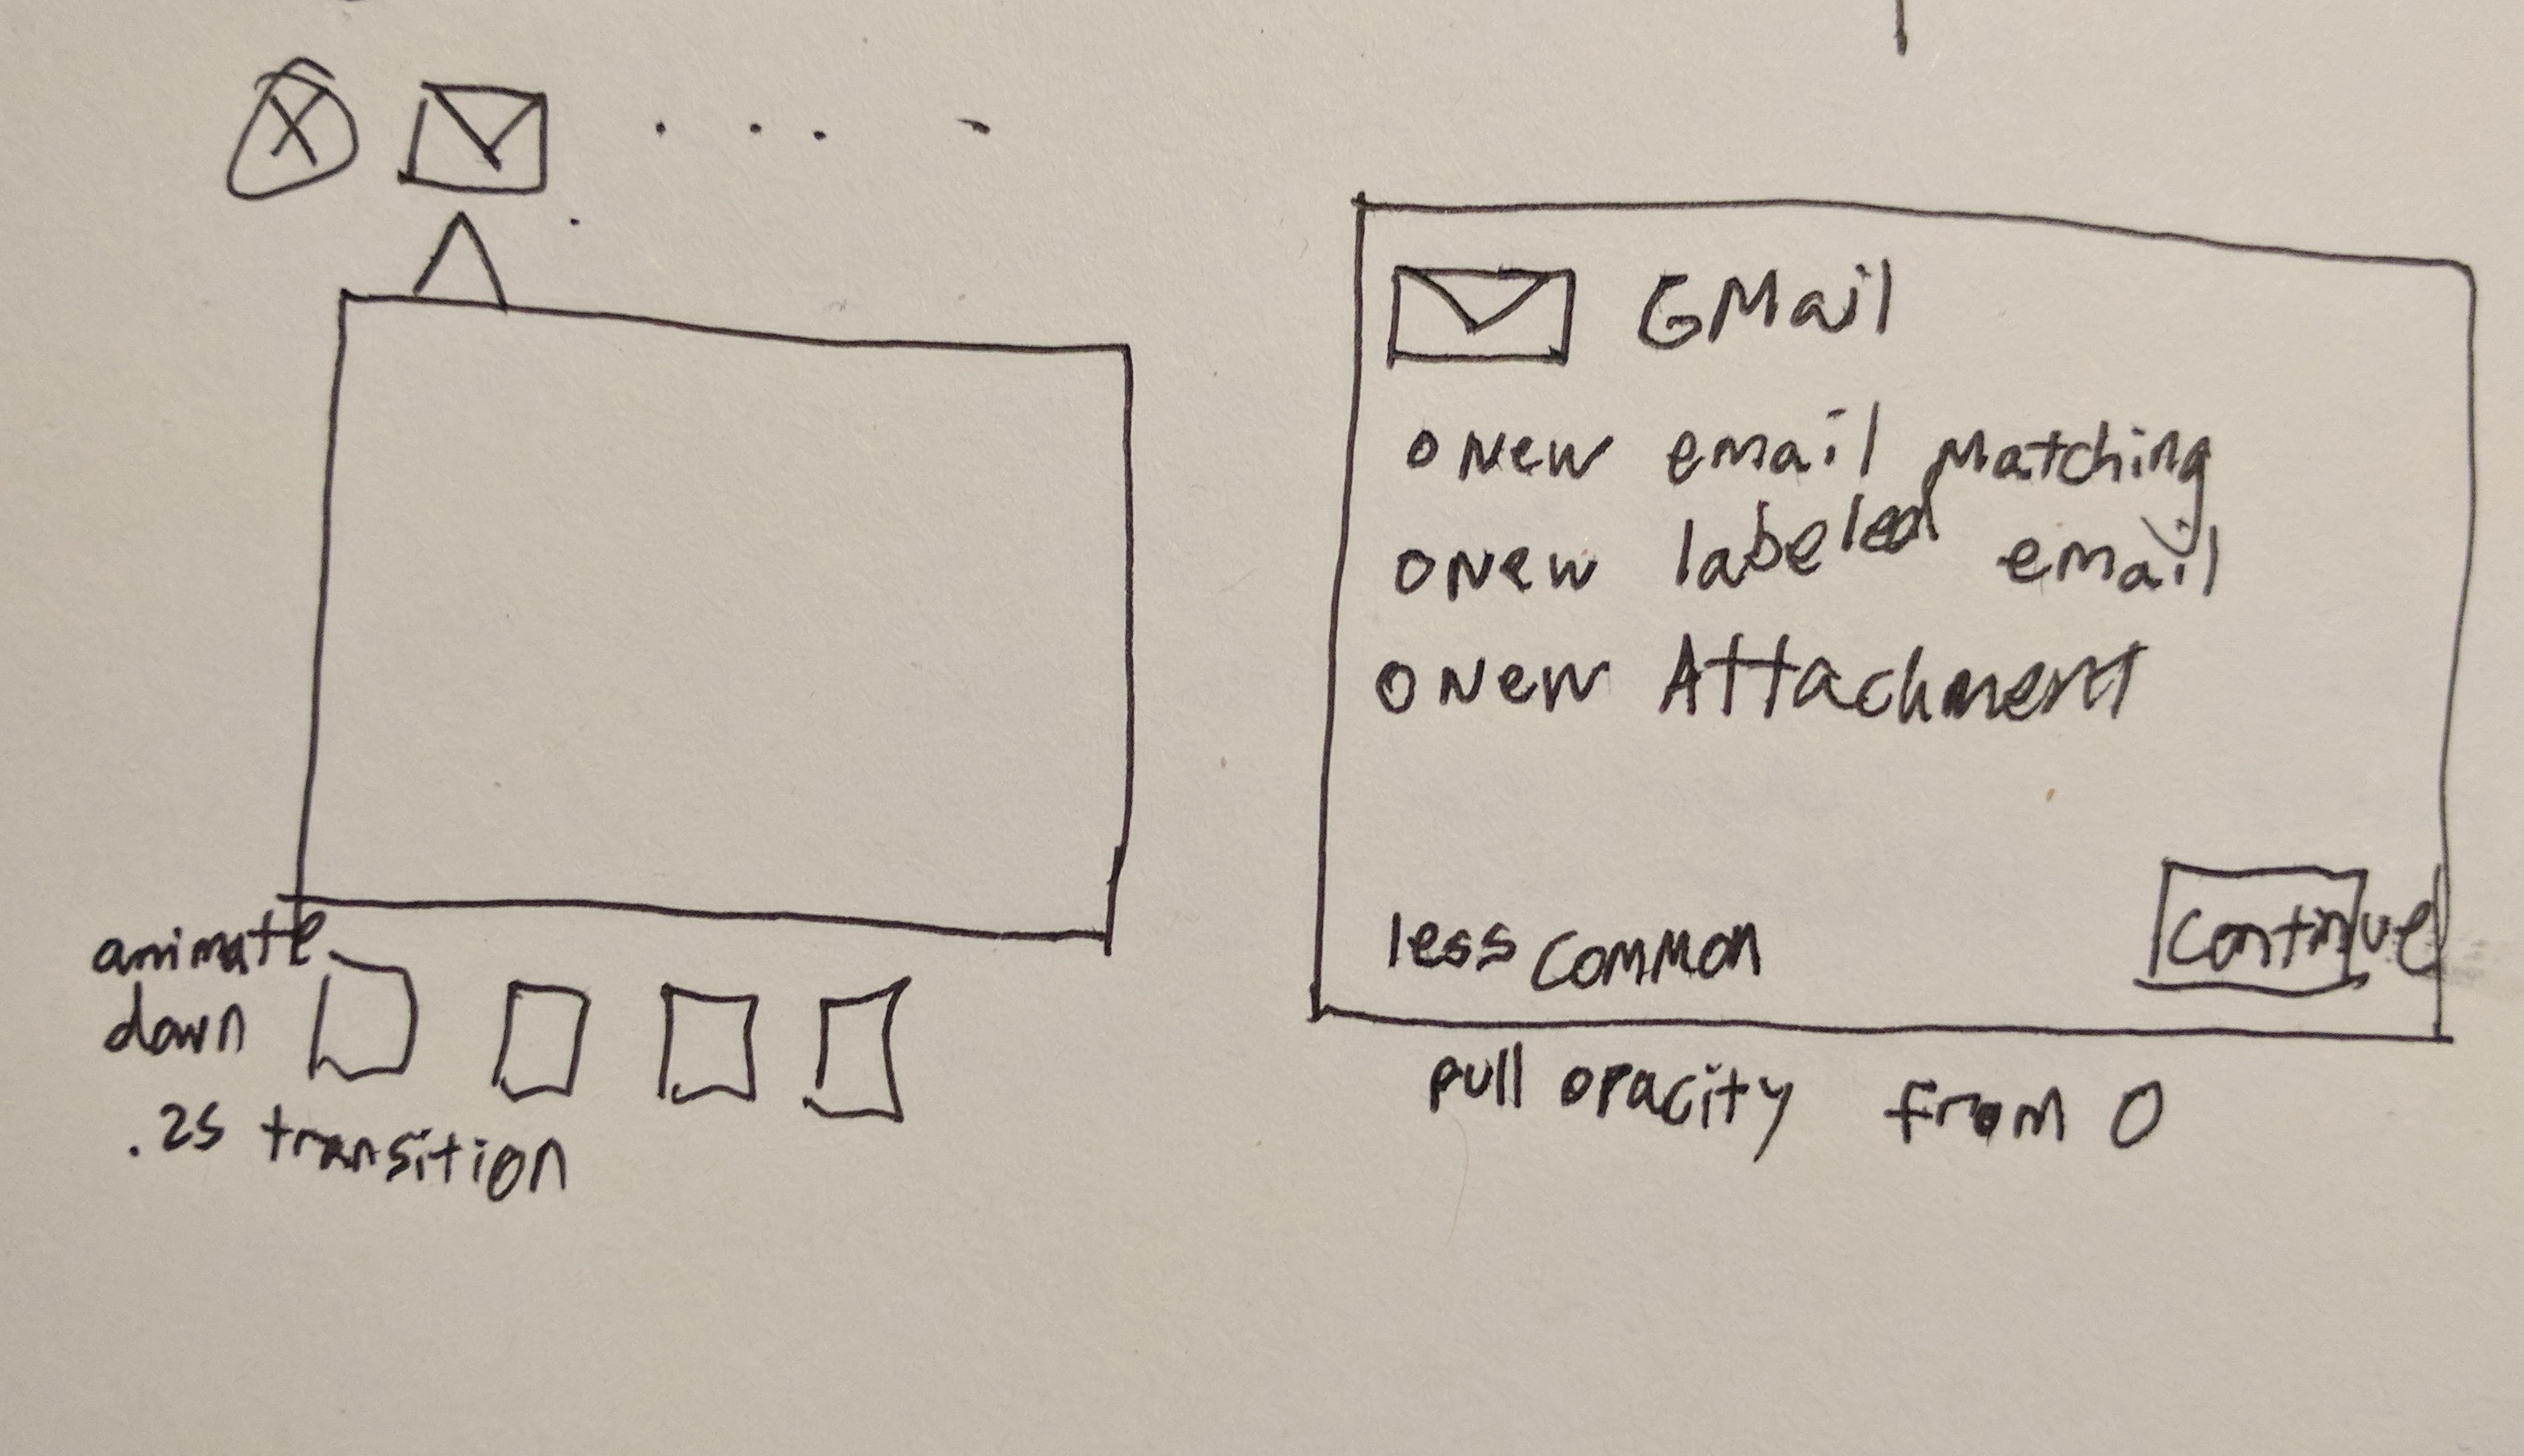 X
animate
down
.2s transition
GMail
o New email Matching
o New labeled email
o New Attachment
less common
Continue
pull opacity from 0